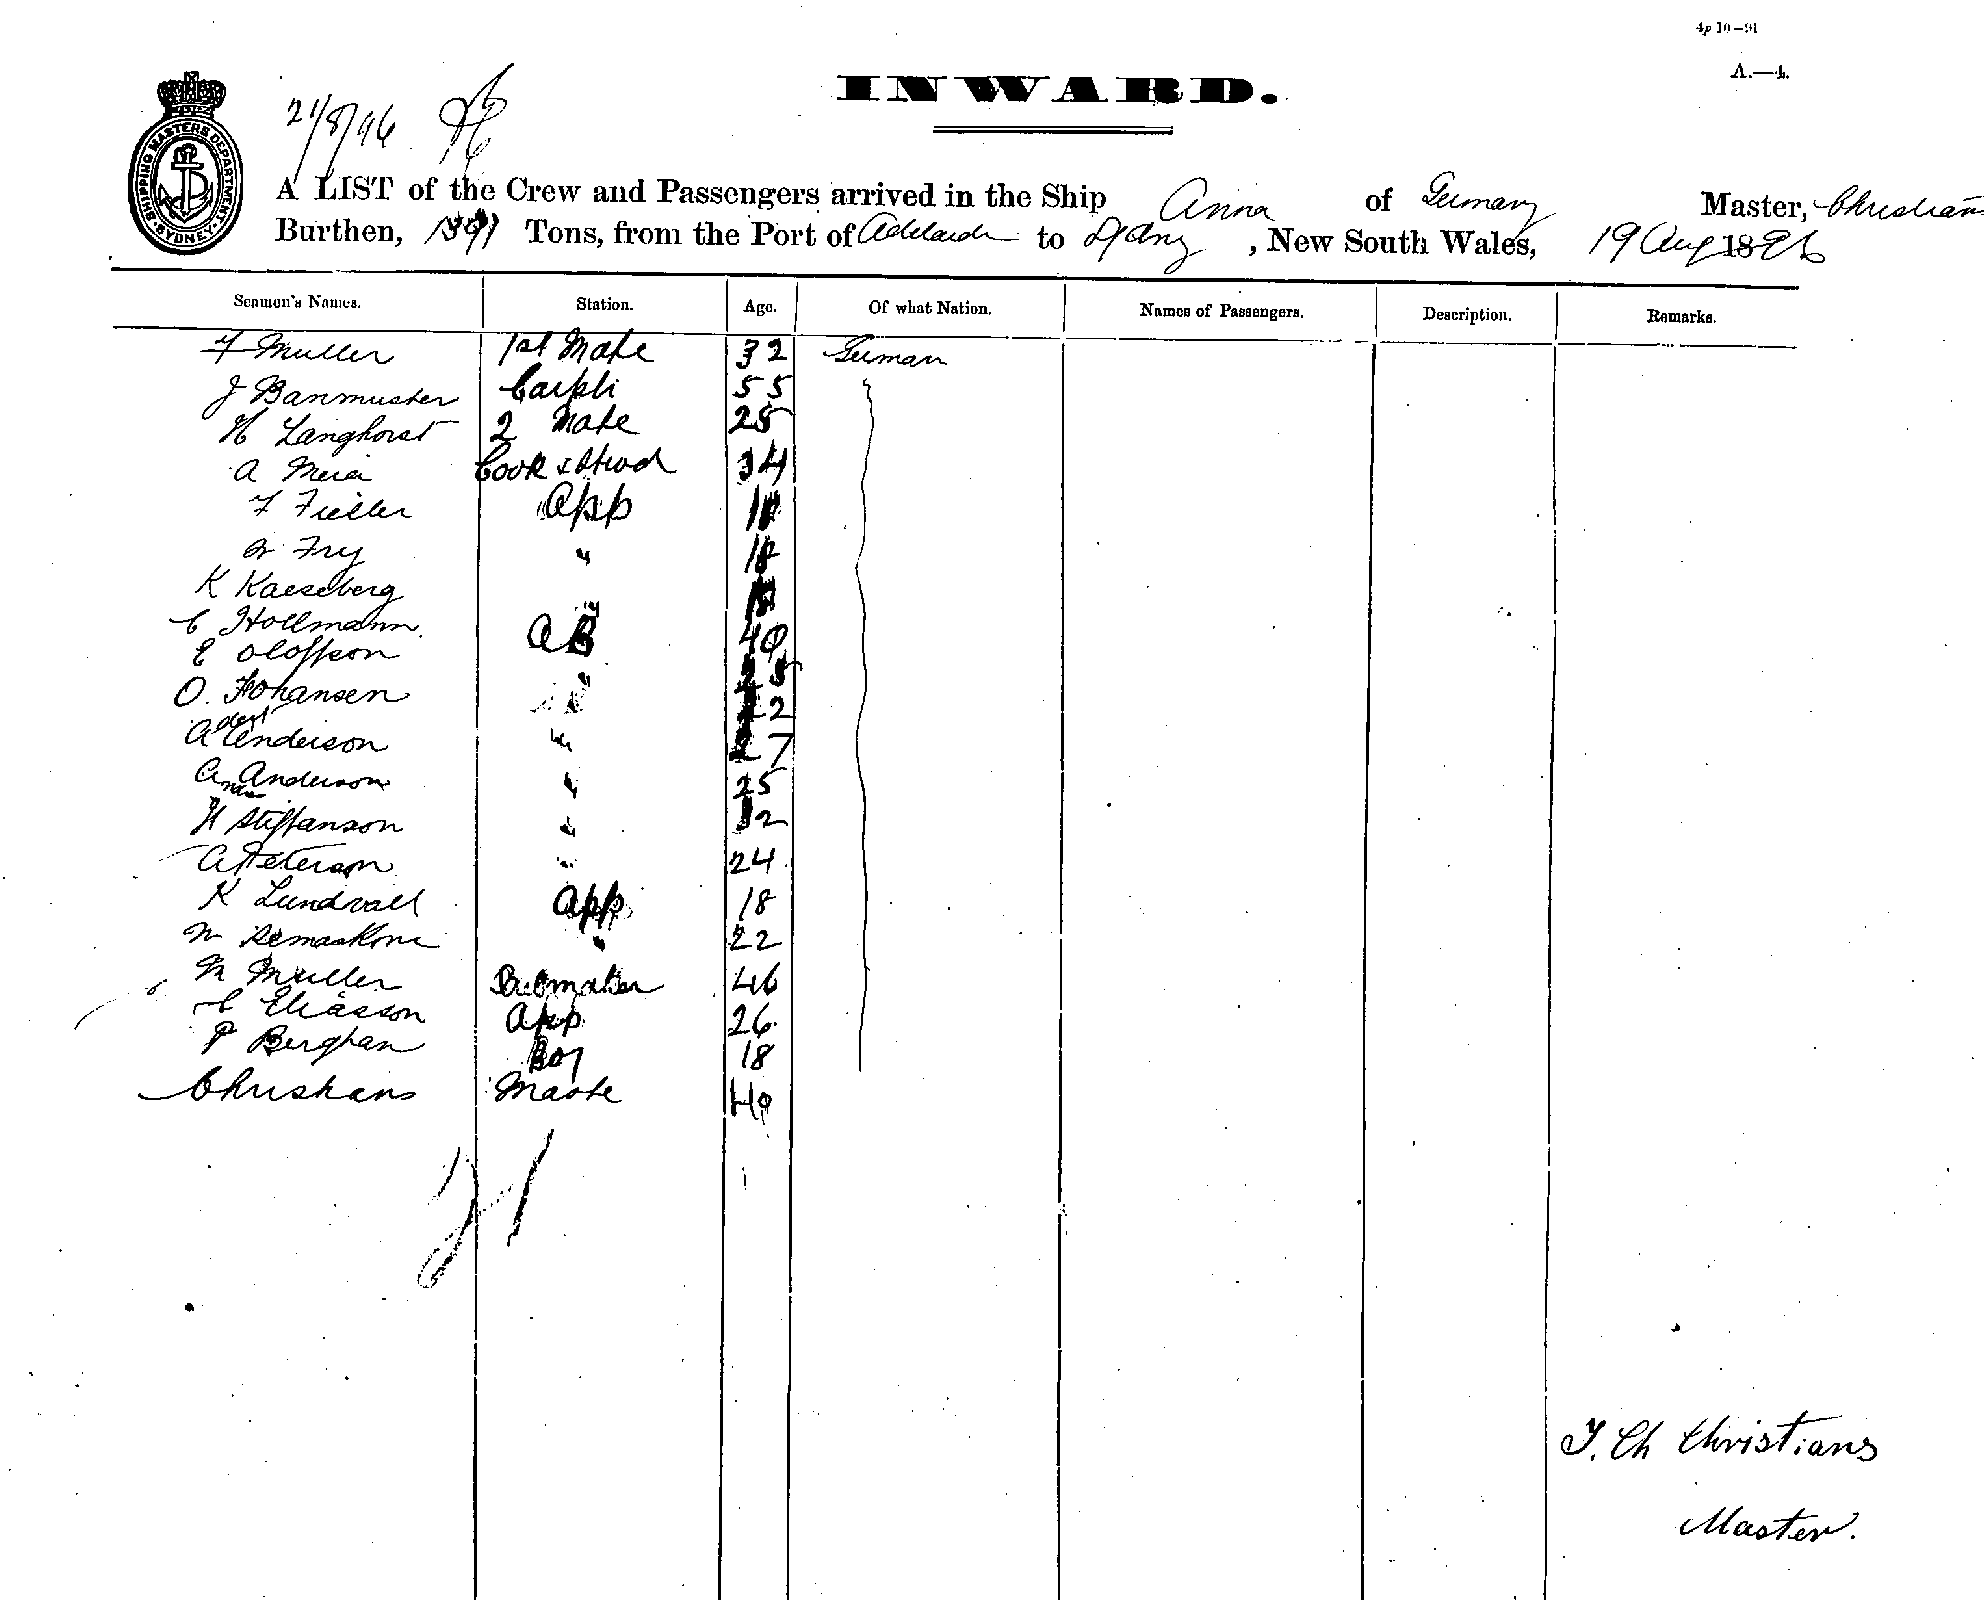 4p 10—91
A.—4.
INWARD.
21/8/96
SHIPPING MASTERS DEPARTMENT SYDNEY
A LIST of the Crew and Passengers arrived in the Ship Anna of Germany Master, Christians
Burthen, Tons, from the Port of Adelaide to Sydney, New South Wales, 19 Aug 1896
Seamen's Names. Station. Age. Of what Nation. Names of Passengers. Description. Remarks.
F Muller 1st Mate 32 German
J Banmuster 55
H Langhorst 2 Mate 25
A Meier Cook & Stwd 34
F Fieller App
Fry " 18
K Kaeseberg
C Hollmann AB 40
E Oloffson 25
O. Johansen 22
A Anderson 27
A Anderson " 25
H Stiffanson "
A Peterson " 24
K Lundvall App 18
" 22
M Muller 46
C Eliasson App 26
P Berghan Boy 18
Christians Maste 40
21
J. Ch Christians
Master.